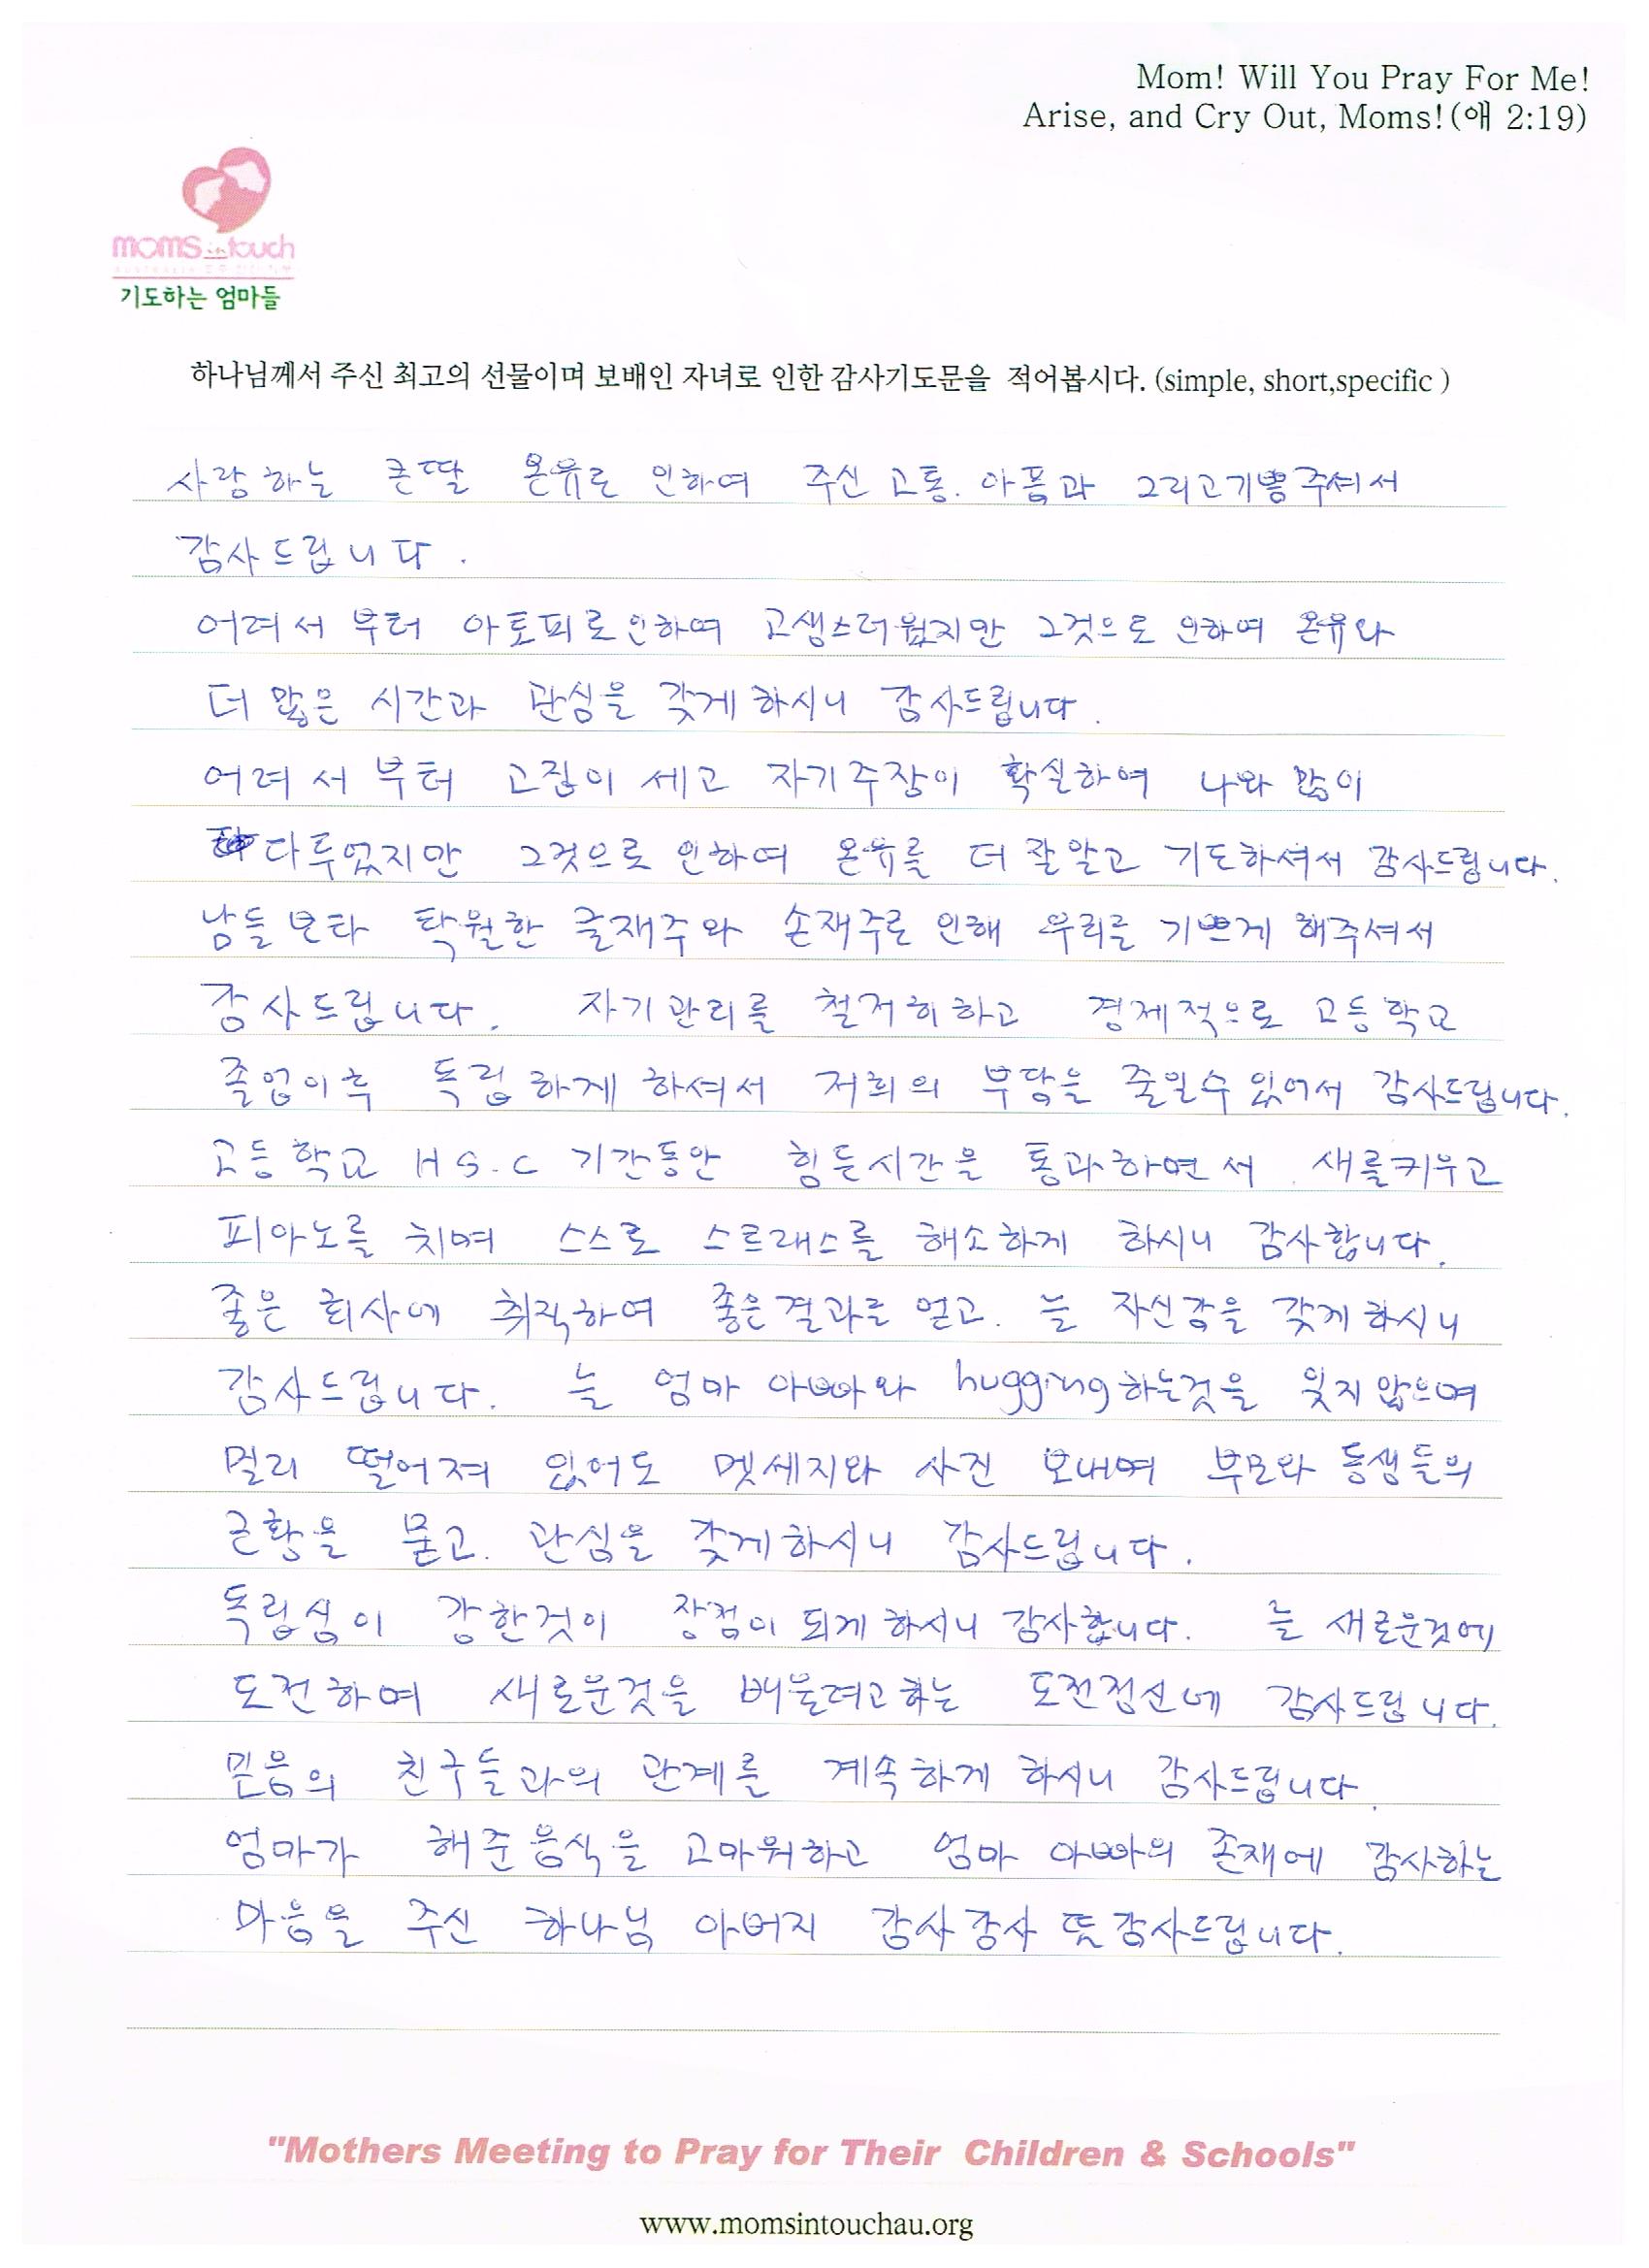 Mom! Will You Pray For Me!
Arise, and Cry Out, Moms!(애 2:19)
moms in touch
기도하는 엄마들
하나님께서 주신 최고의 선물이며 보배인 자녀로 인한 감사기도문을 적어봅시다. (simple, short,specific )
사랑하는 큰딸 온유로 인하여 주신 고통. 아픔과 그리고기쁨주셔서
감사드립니다.
어려서 부터 아토피로인하여 고생스러웠지만 그것으로 인하여 온유와
더 많은 시간과 관심을 갖게하시니 감사드립니다.
어려서 부터 고집이 세고 자기주장이 확실하여 나와 많이
다투었지만 그것으로 인하여 온유를 더 잘알고 기도하셔서 감사드립니다.
남들보다 탁월한 글재주와 손재주로 인해 우리를 기쁘게 해주셔서
감사드립니다. 자기관리를 철저히하고 경제적으로 고등학교
졸업이후 독립하게 하셔서 저희의 부담을 줄일수있어서 감사드립니다.
고등학교 H S.C 기간동안 힘든시간을 통과하면서 새를키우고
피아노를 치며 스스로 스트래스를 해소하게 하시니 감사합니다.
좋은 회사에 취직하여 좋은결과를 얻고. 늘 자신감을 갖게하시니
감사드립니다. 늘 엄마 아빠와 hugging하는것을 잊지않으며
멀리 떨어져 있어도 멧세지와 사진 보내며 부모와 동생들의
근황을 묻고. 관심을 갖게하시니 감사드립니다.
독립심이 강한것이 장점이 되게하시니 감사합니다. 늘 새로운것에
도전하여 새로운것을 배울려고하는 도전정신에 감사드립니다.
믿음의 친구들과의 관계를 계속하게 하시니 감사드립니다.
엄마가 해준음식을 고마워하고 엄마 아빠의 존재에 감사하는
마음을 주신 하나님 아버지 감사감사 또감사드립니다.
"Mothers Meeting to Pray for Their Children & Schools"
www.momsintouchau.org